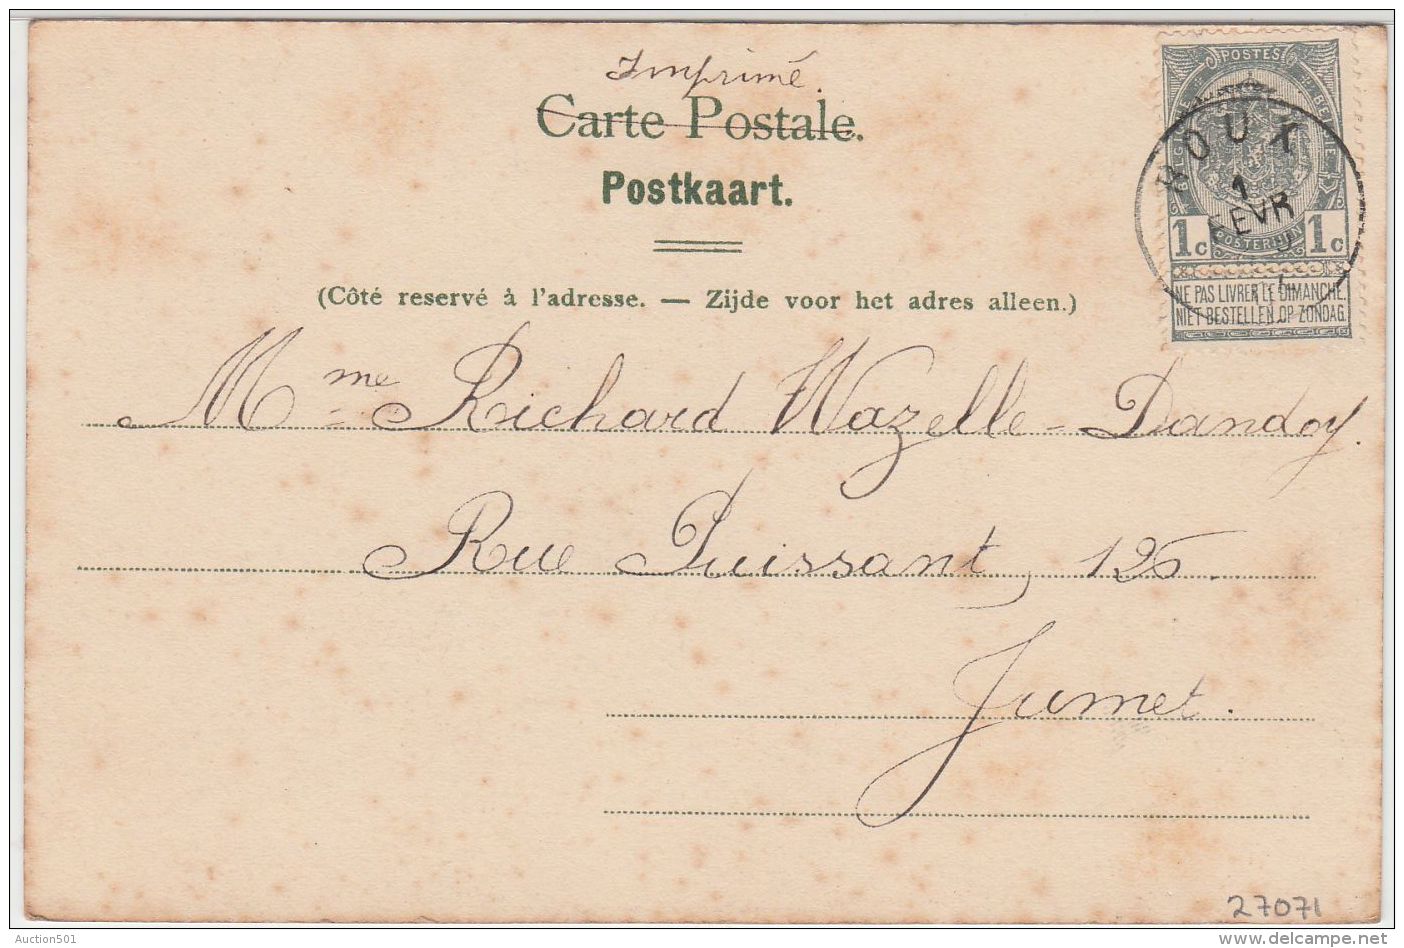 Imprimé.
Carte Postale.
Postkaart.
(Côté reservé à l'adresse. — Zijde voor het adres alleen.)
POSTES
ROUX
1
FEVR
1c POSTERIJEN 1c
NE PAS LIVRER LE DIMANCHE.
NIET BESTELLEN OP ZONDAG.
Mme Richard Wazelle-Dandoy.
Rue Puissant, 126.
Jumet.
27071
Auction501
http://www.delcampe.net